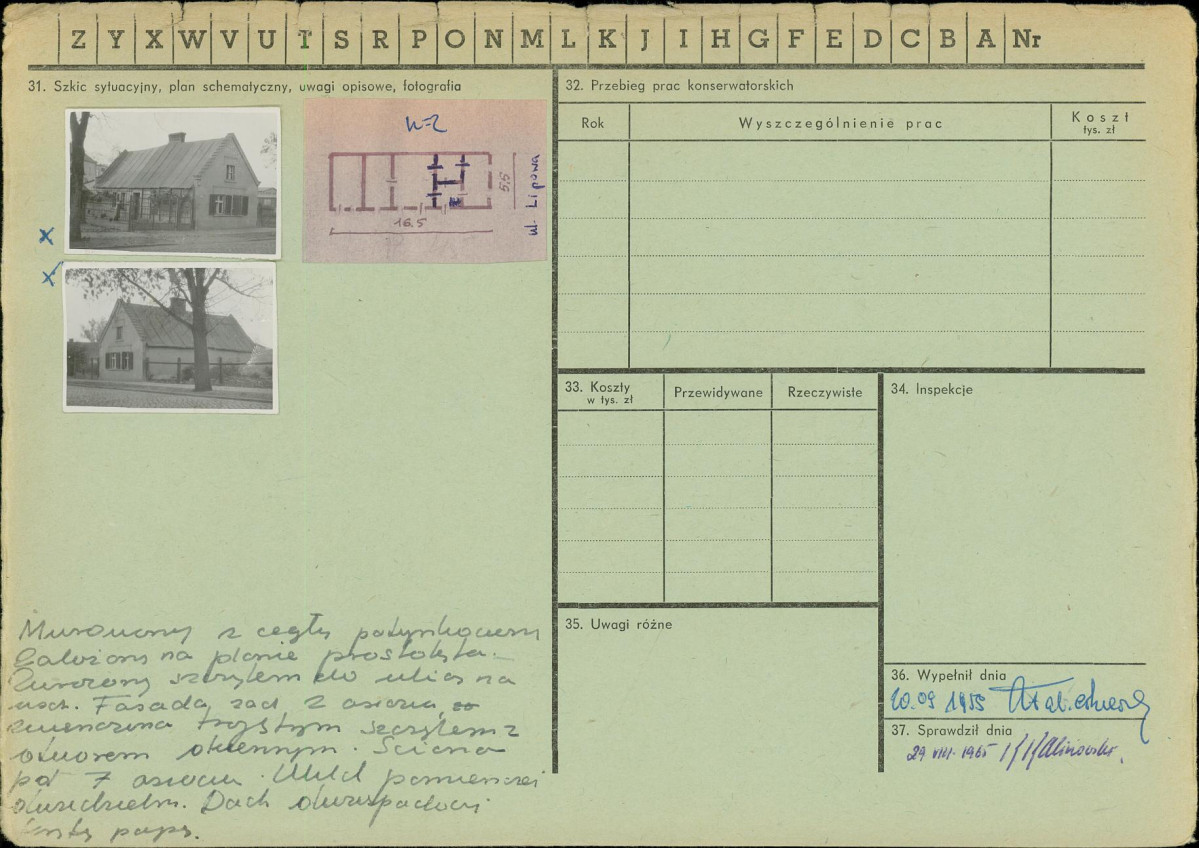 Z Y X W V U T S R P O N M L K J I H G F E D C B A Nr
31. Szkic sytuacyjny, plan schematyczny, uwagi opisowe, fotografia
16.5
5.5
ul. Lipowa
Murowany z cegły potynkowany
Założony na planie prostokąta.
Zwrócony szczytem do ulicy na
wsch. Fasada zach 2 osiowa,
zwieńczona trójkątnym szczytem z
otworem okiennym. Ściana
płd 7 osiowa. Układ pomieszczeń
Dach dwuspadowy
kryty papą.
32. Przebieg prac konserwatorskich
Rok
Wyszczególnienie prac
Koszt
tys. zł
33. Koszty
w tys. zł
Przewidywane
Rzeczywiste
34. Inspekcje
35. Uwagi różne
36. Wypełnił dnia
20.09 1955
37. Sprawdził dnia
29 VIII. 1965 Kalinowski